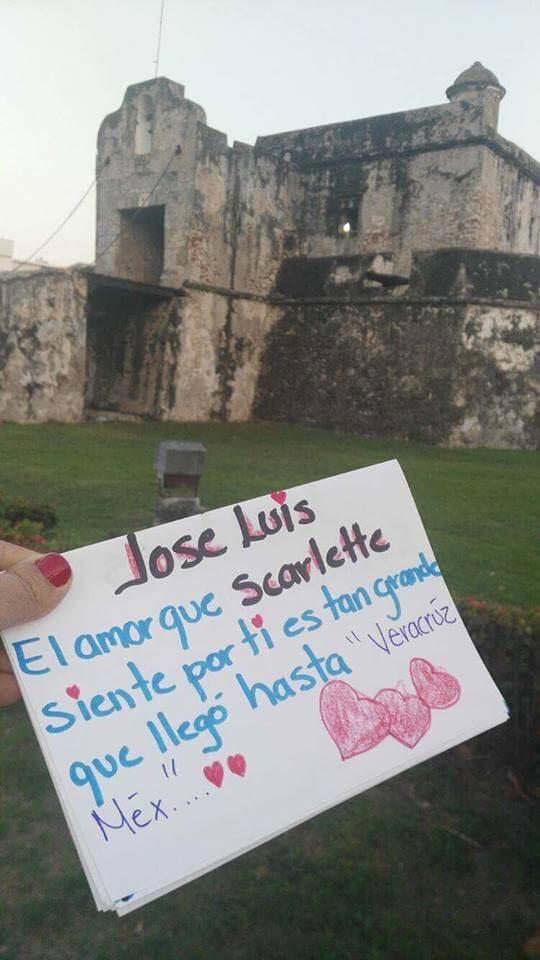 Jose Luis
El amor que scarlette
siente por ti es tan grande
que llegó hasta "Veracrúz
Méx"....